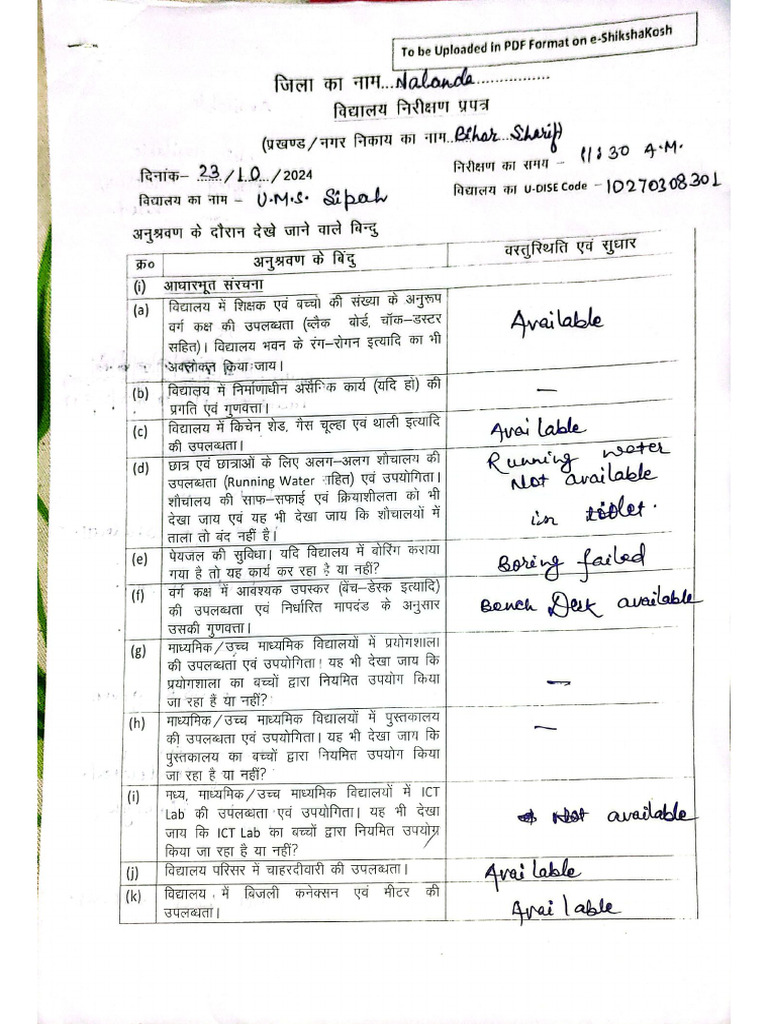 To be Uploaded in PDF Format on e-ShikshaKosh
जिला का नाम...Nalanda................
विद्यालय निरीक्षण प्रपत्र
(प्रखण्ड/नगर निकाय का नाम..Bihar Sharif)
दिनांक– 23/10/2024
निरीक्षण का समय – 11:30 A.M.
विद्यालय का नाम – U.M.S. Sipah
विद्यालय का U-DISE Code – 10270308301
अनुश्रवण के दौरान देखे जाने वाले बिन्दु
क्र० अनुश्रवण के बिंदु वस्तुस्थिति एवं सुधार
(i) आधारभूत संरचना
(a) विद्यालय में शिक्षक एवं बच्चों की संख्या के अनुरूप
वर्ग कक्ष की उपलब्धता (ब्लैक बोर्ड, चॉक–डस्टर
सहित)। विद्यालय भवन के रंग–रोगन इत्यादि का भी
अवलोकन किया जाय।
Available
(b) विद्यालय में निर्माणाधीन असैनिक कार्य (यदि हो) की
प्रगति एवं गुणवत्ता।
–
(c) विद्यालय में किचेन शेड, गैस चूल्हा एवं थाली इत्यादि
की उपलब्धता।
Available
(d) छात्र एवं छात्राओं के लिए अलग–अलग शौचालय की
उपलब्धता (Running Water सहित) एवं उपयोगिता।
शौचालय की साफ–सफाई एवं क्रियाशीलता को भी
देखा जाय एवं यह भी देखा जाय कि शौचालयों में
ताला तो बंद नहीं है।
Running water
Not available
in toilet.
(e) पेयजल की सुविधा। यदि विद्यालय में बोरिंग कराया
गया है तो यह कार्य कर रहा है या नहीं?
Boring failed
(f) वर्ग कक्ष में आवश्यक उपस्कर (बेंच–डेस्क इत्यादि)
की उपलब्धता एवं निर्धारित मापदंड के अनुसार
उसकी गुणवत्ता।
Bench Desk available
(g) माध्यमिक/उच्च माध्यमिक विद्यालयों में प्रयोगशाला
की उपलब्धता एवं उपयोगिता। यह भी देखा जाय कि
प्रयोगशाला का बच्चों द्वारा नियमित उपयोग किया
जा रहा है या नहीं?
–
(h) माध्यमिक/उच्च माध्यमिक विद्यालयों में पुस्तकालय
की उपलब्धता एवं उपयोगिता। यह भी देखा जाय कि
पुस्तकालय का बच्चों द्वारा नियमित उपयोग किया
जा रहा है या नहीं?
–
(i) मध्य, माध्यमिक/उच्च माध्यमिक विद्यालयों में ICT
Lab की उपलब्धता एवं उपयोगिता। यह भी देखा
जाय कि ICT Lab का बच्चों द्वारा नियमित उपयोग
किया जा रहा है या नहीं?
Not available
(j) विद्यालय परिसर में चाहरदीवारी की उपलब्धता।
Available
(k) विद्यालय में बिजली कनेक्सन एवं मीटर की
उपलब्धता।
Available